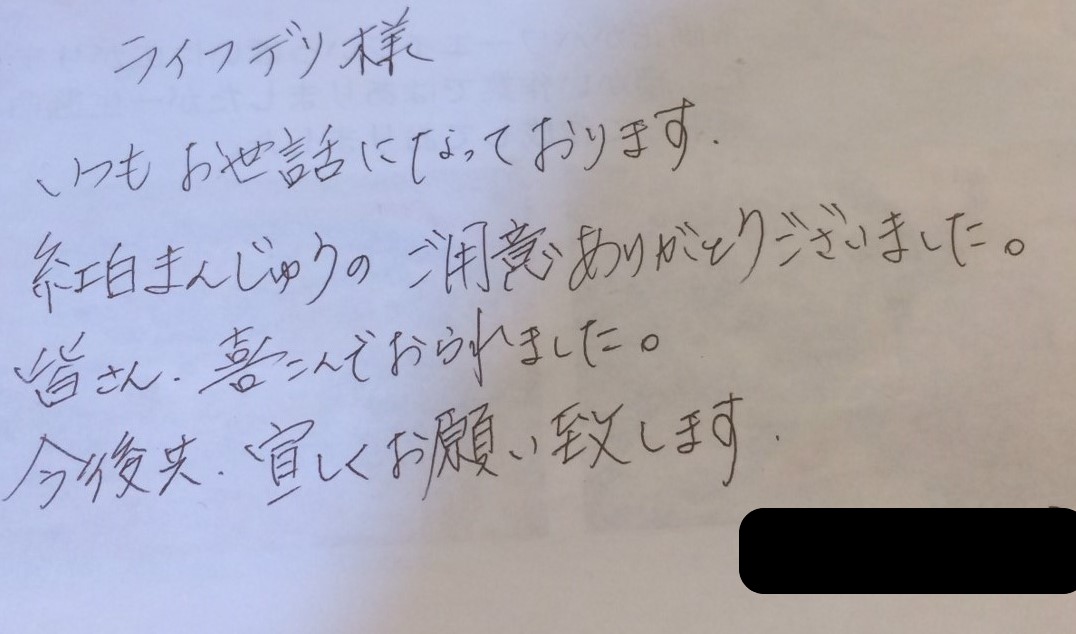 ライフデリ様
いつもお世話になっております.
紅白まんじゅうのご用意ありがとうございました。
皆さん、喜こんでおられました。
今後共、宜しくお願い致します.